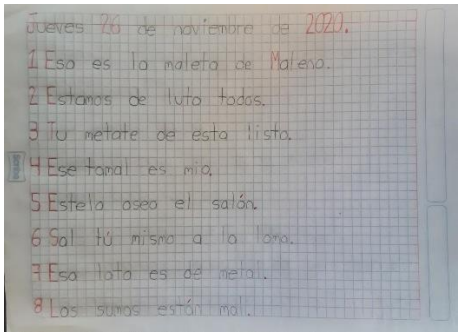 Jueves 26 de noviembre de 2020.
1 Esa es la maleta de Malena.
2 Estamos de luto todos.
3 Tu metate de esta listo.
4 Ese tamal es mio.
5 Estela aseo el salón.
6 Sal tú mismo a la loma.
7 Esa lata es de metal.
8 Las sumas están mal.